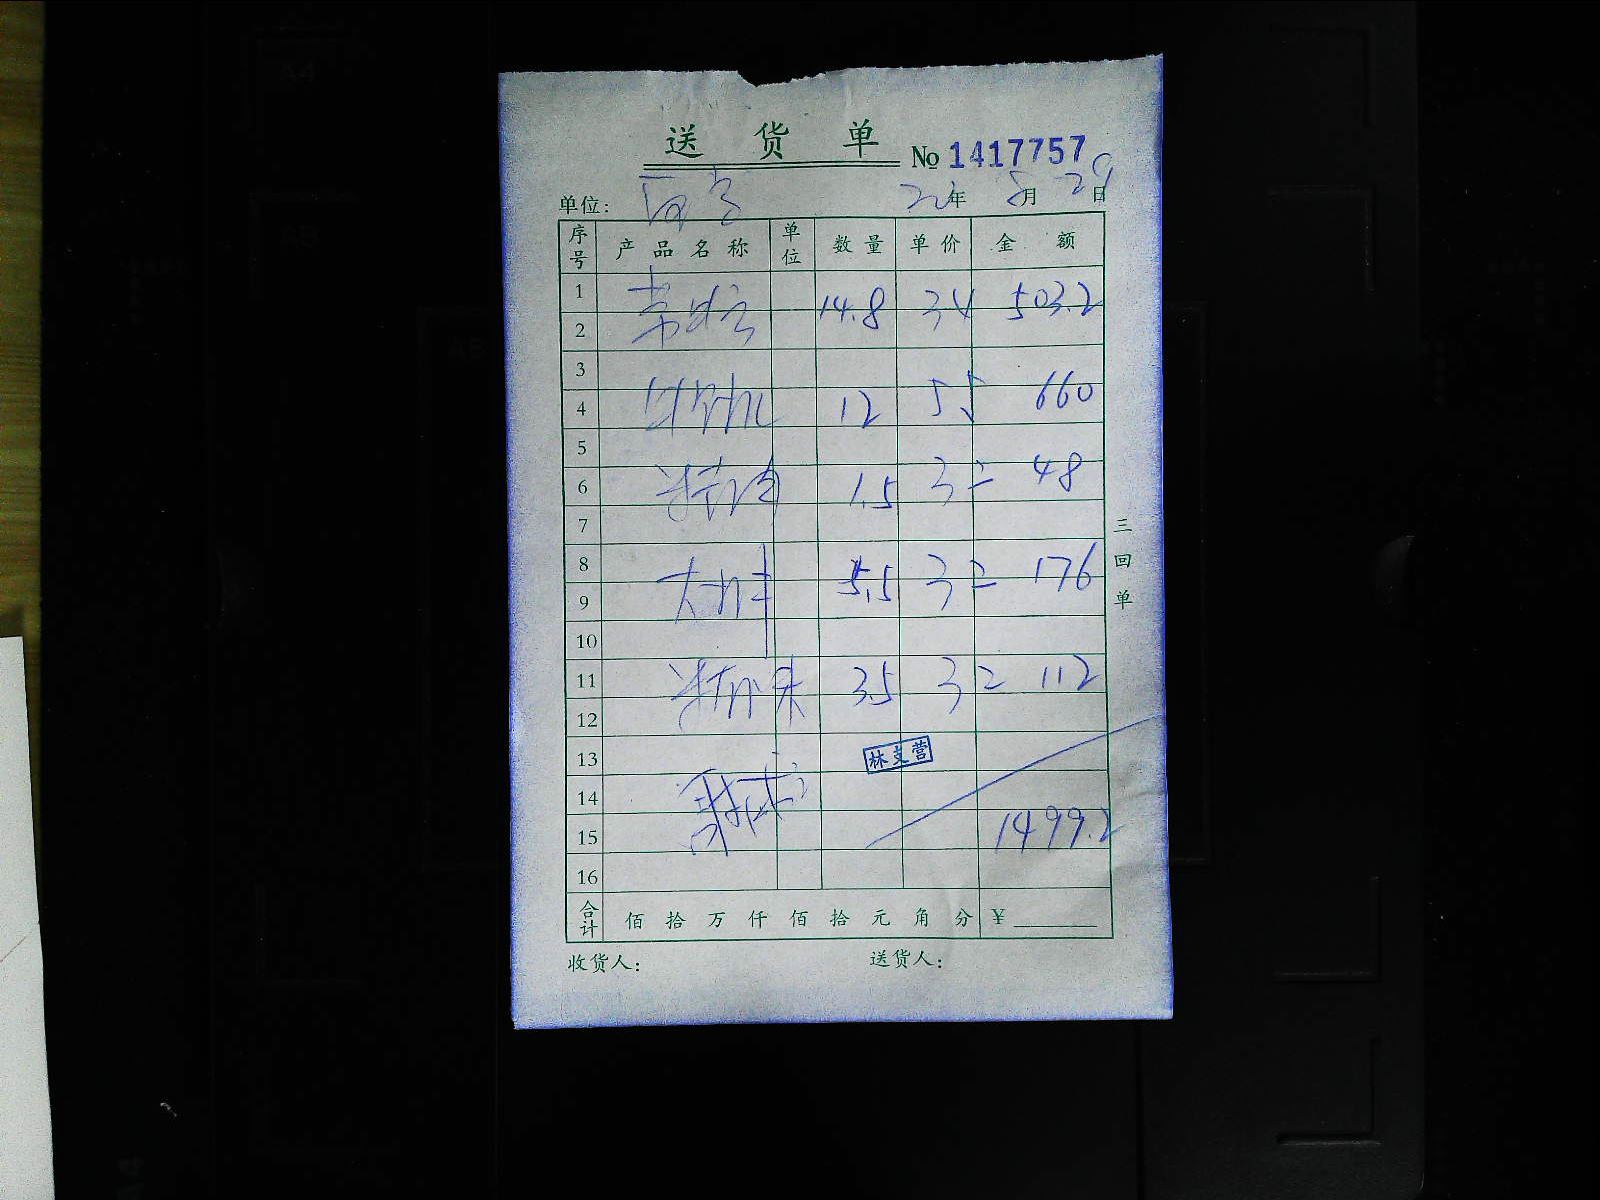 送货单 No 1417757
单位: 22年 8月 29日
序号 产品名称 单位 数量 单价 金额
1
14.8 34 503.2
2
3
12 55 660
4
5
1.5 32 48
6
7
8
5.5 32 176
9
10
11 3.5 32 112
12
13 林支营
14
15 1499.2
16
合计 佰 拾 万 仟 佰 拾 元 角 分 ¥
收货人: 送货人:
三回单